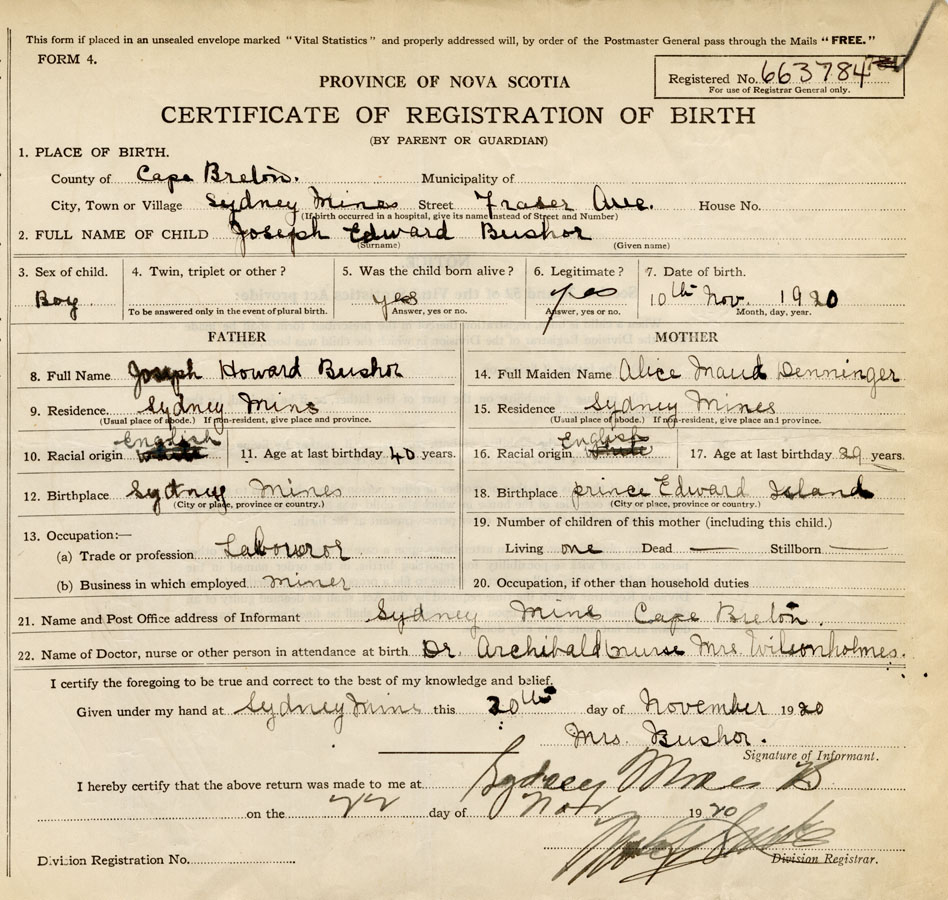 This form if placed in an unsealed envelope marked "Vital Statistics" and properly addressed will, by order of the Postmaster General pass through the Mails "FREE."
FORM 4.
Registered No. 663784
For use of Registrar General only.
PROVINCE OF NOVA SCOTIA
CERTIFICATE OF REGISTRATION OF BIRTH
(BY PARENT OR GUARDIAN)
1. PLACE OF BIRTH.
County of Cape Breton. Municipality of
City, Town or Village Sydney Mines Street Fraser Ave. House No.
(If birth occurred in a hospital, give its name instead of Street and Number)
2. FULL NAME OF CHILD Joseph Edward Bushor
(Surname) (Given name)
3. Sex of child. 4. Twin, triplet or other ? 5. Was the child born alive ? 6. Legitimate ? 7. Date of birth.
Boy yes yes 10th Nov. 1920
To be answered only in the event of plural birth. Answer, yes or no. Answer, yes or no. Month, day, year.
FATHER MOTHER
8. Full Name Joseph Howard Bushor 14. Full Maiden Name Alice Maud Denninger
9. Residence. Sydney Mins 15. Residence Sydney Mines
(Usual place of abode.) If non-resident, give place and province. (Usual place of abode.) If non-resident, give place and province.
English English
10. Racial origin white 11. Age at last birthday 40 years. 16. Racial origin white 17. Age at last birthday 29 years.
12. Birthplace Sydney Mines 18. Birthplace prince Edward Island
(City or place, province or country.) (City or place, province or country.)
13. Occupation:— 19. Number of children of this mother (including this child.)
(a) Trade or profession Labouror Living one Dead — Stillborn —
(b) Business in which employed miner 20. Occupation, if other than household duties
21. Name and Post Office address of Informant Sydney Mins Cape Breton.
22. Name of Doctor, nurse or other person in attendance at birth Dr. Archibald nurse Mrs. Wilsonholmes.
I certify the foregoing to be true and correct to the best of my knowledge and belief.
Given under my hand at Sydney Mins this 20th day of November 1920
Mrs. Bushor.
Signature of Informant.
I hereby certify that the above return was made to me at Sydney Mines
on the 22 day of Nov 1920
Division Registration No. Division Registrar.